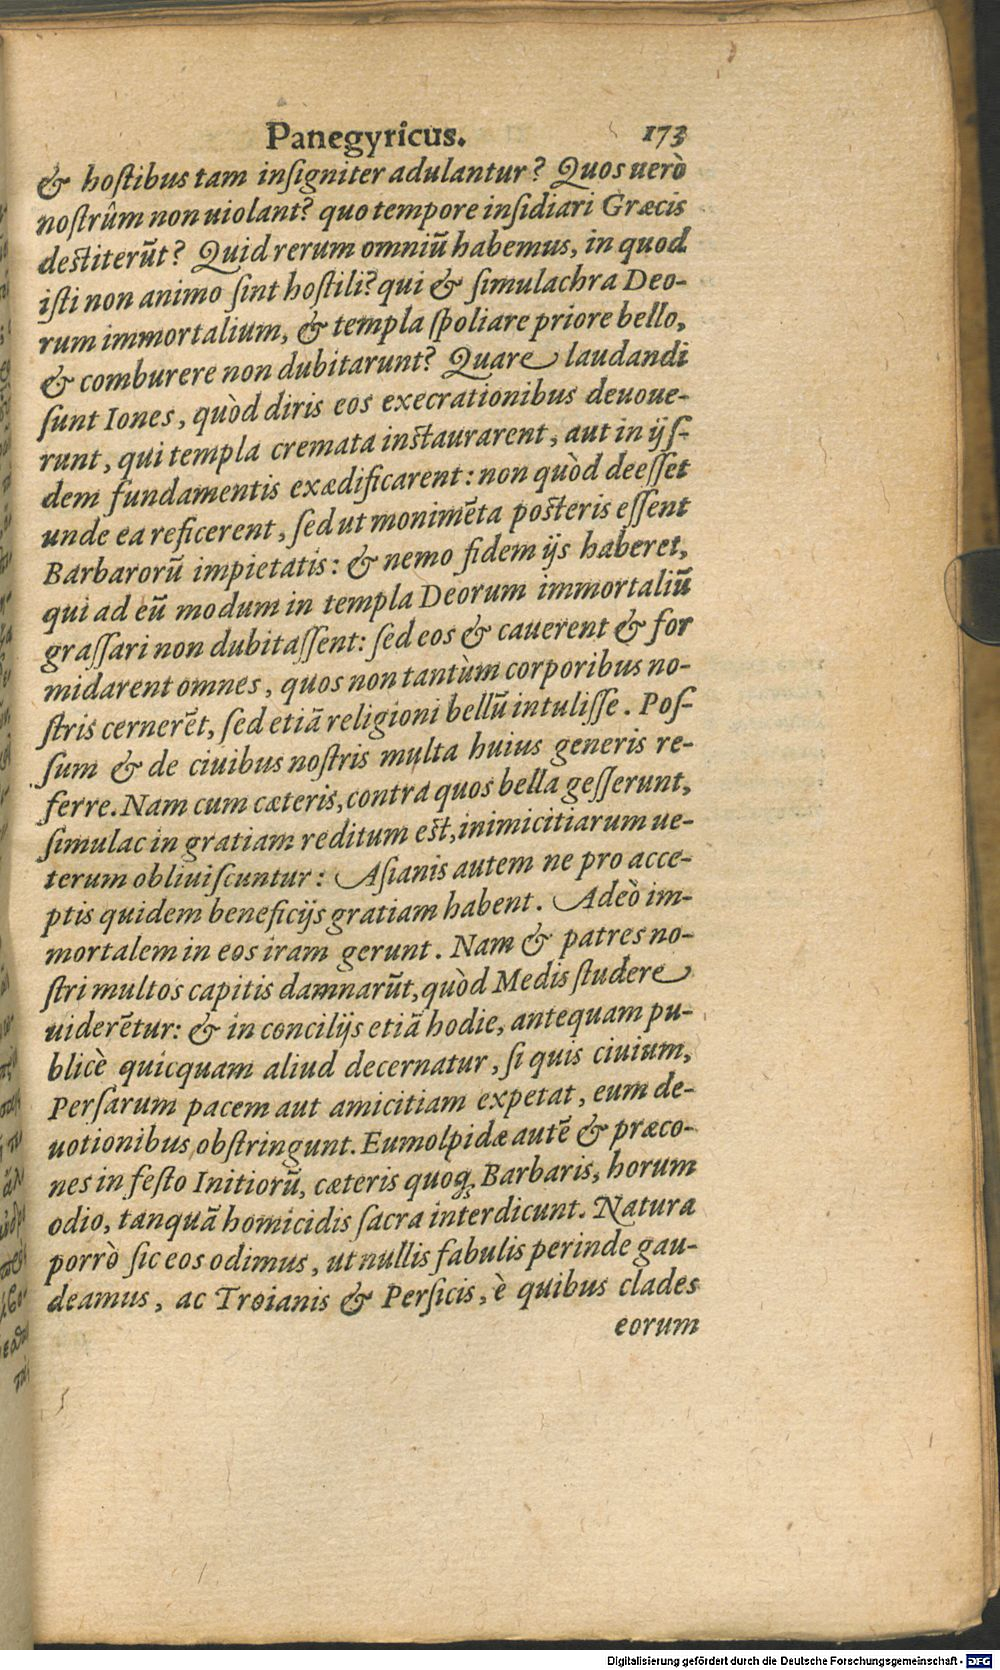 Panegyricus. 173
& hoſtibus tam inſigniter adulantur? Quos uerò
noſtrûm non uiolant? quo tempore inſidiari Græcis
deſtiterūt? Quid rerum omniū habemus, in quod
iſti non animo ſint hoſtili? qui & ſimulachra Deo-
rum immortalium, & templa ſpoliare priore bello,
& comburere non dubitarunt? Quare laudandi
ſunt Iones, quòd diris eos execrationibus deuoue-
runt, qui templa cremata inſtaurarent, aut in ijſ-
dem fundamentis exædificarent: non quòd deeſſet
unde ea reficerent, ſed ut monimēta poſteris eſſent
Barbarorū impietatis: & nemo fidem ijs haberet,
qui ad eū modum in templa Deorum immortaliū
graſſari non dubitaſſent: ſed eos & cauerent & for
midarent omnes, quos non tantùm corporibus no-
ſtris cernerēt, ſed etiā religioni bellū intuliſſe. Poſ-
ſum & de ciuibus noſtris multa huius generis re-
ferre. Nam cum cæteris, contra quos bella geſſerunt,
ſimulac in gratiam reditum eſt, inimicitiarum ue-
terum obliuiſcuntur: Aſianis autem ne pro acce-
ptis quidem beneficijs gratiam habent. Adeò im-
mortalem in eos iram gerunt. Nam & patres no-
ſtri multos capitis damnarūt, quòd Medis ſtudere
uiderētur: & in concilijs etiā hodie, antequam pu-
blicè quicquam aliud decernatur, ſi quis ciuium,
Perſarum pacem aut amicitiam expetat, eum de-
uotionibus obſtringunt. Eumolpidæ autē & præco-
nes in feſto Initiorū, cæteris quoq; Barbaris, horum
odio, tanquā homicidis ſacra interdicunt. Natura
porrò ſic eos odimus, ut nullis fabulis perinde gau-
deamus, ac Troianis & Perſicis, è quibus clades
eorum
Digitalisierung gefördert durch die Deutsche Forschungsgemeinschaft - DFG